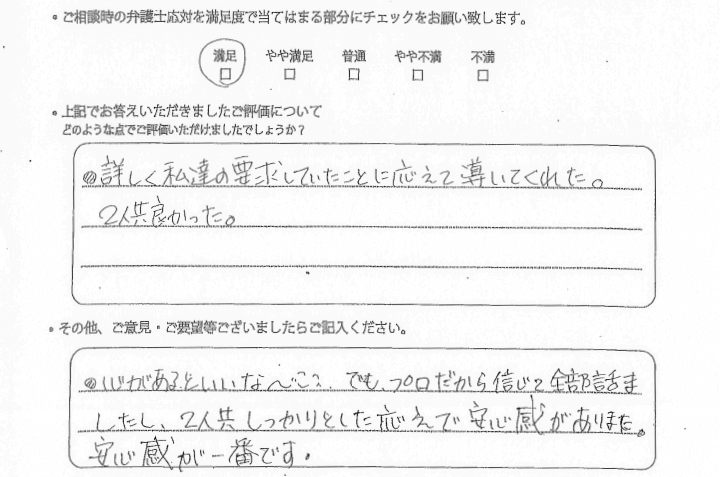 ・ご相談時の弁護士応対を満足度で当てはまる部分にチェックをお願い致します。
満足 やや満足 普通 やや不満 不満
□ □ □ □ □
・上記でお答えいただきましたご評価について
どのような点でご評価いただけましたでしょうか?
詳しく私達の要求していたことに応えて導いてくれた。
2人共良かった。
・その他、ご意見・ご要望等ございましたらご記入ください。
心があるといいなんて でも、プロだから信じて全部話ま
したし、2人共しっかりとした応えで安心感がありました。
安心感が一番です。